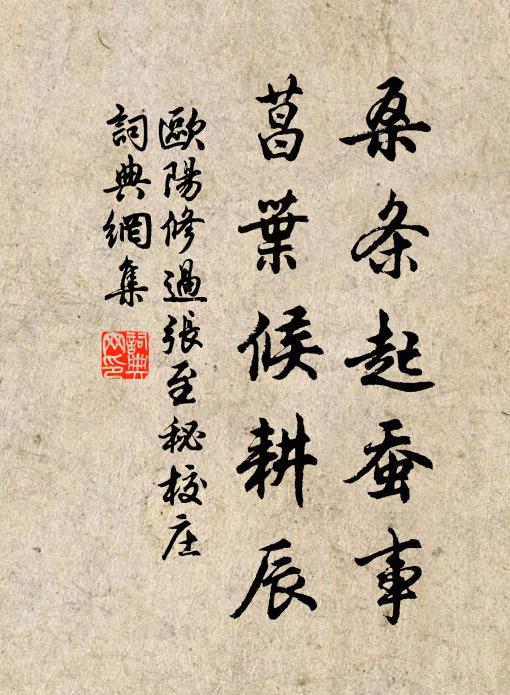 桑条起蚕事
菖葉候耕辰
歐陽修過張至秘校庄
詞典網集
詞典
网印